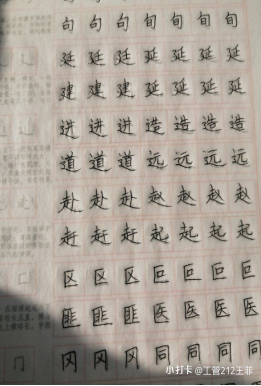 句 句 句 旬 旬 旬 旬
廷 廷 廷 延 延 延 延
建 建 建 延 延 延 延
进 进 进 造 造 造 造
道 道 道 远 远 远 远
赴 赴 赴 赵 赵 赵 赵
赶 赶 赶 起 起 起 起
区 区 区 巨 巨 巨 巨
匪 匪 匪 医 医 医 医
冈 冈 冈 同 同 同 同
小打卡@工管212王菲